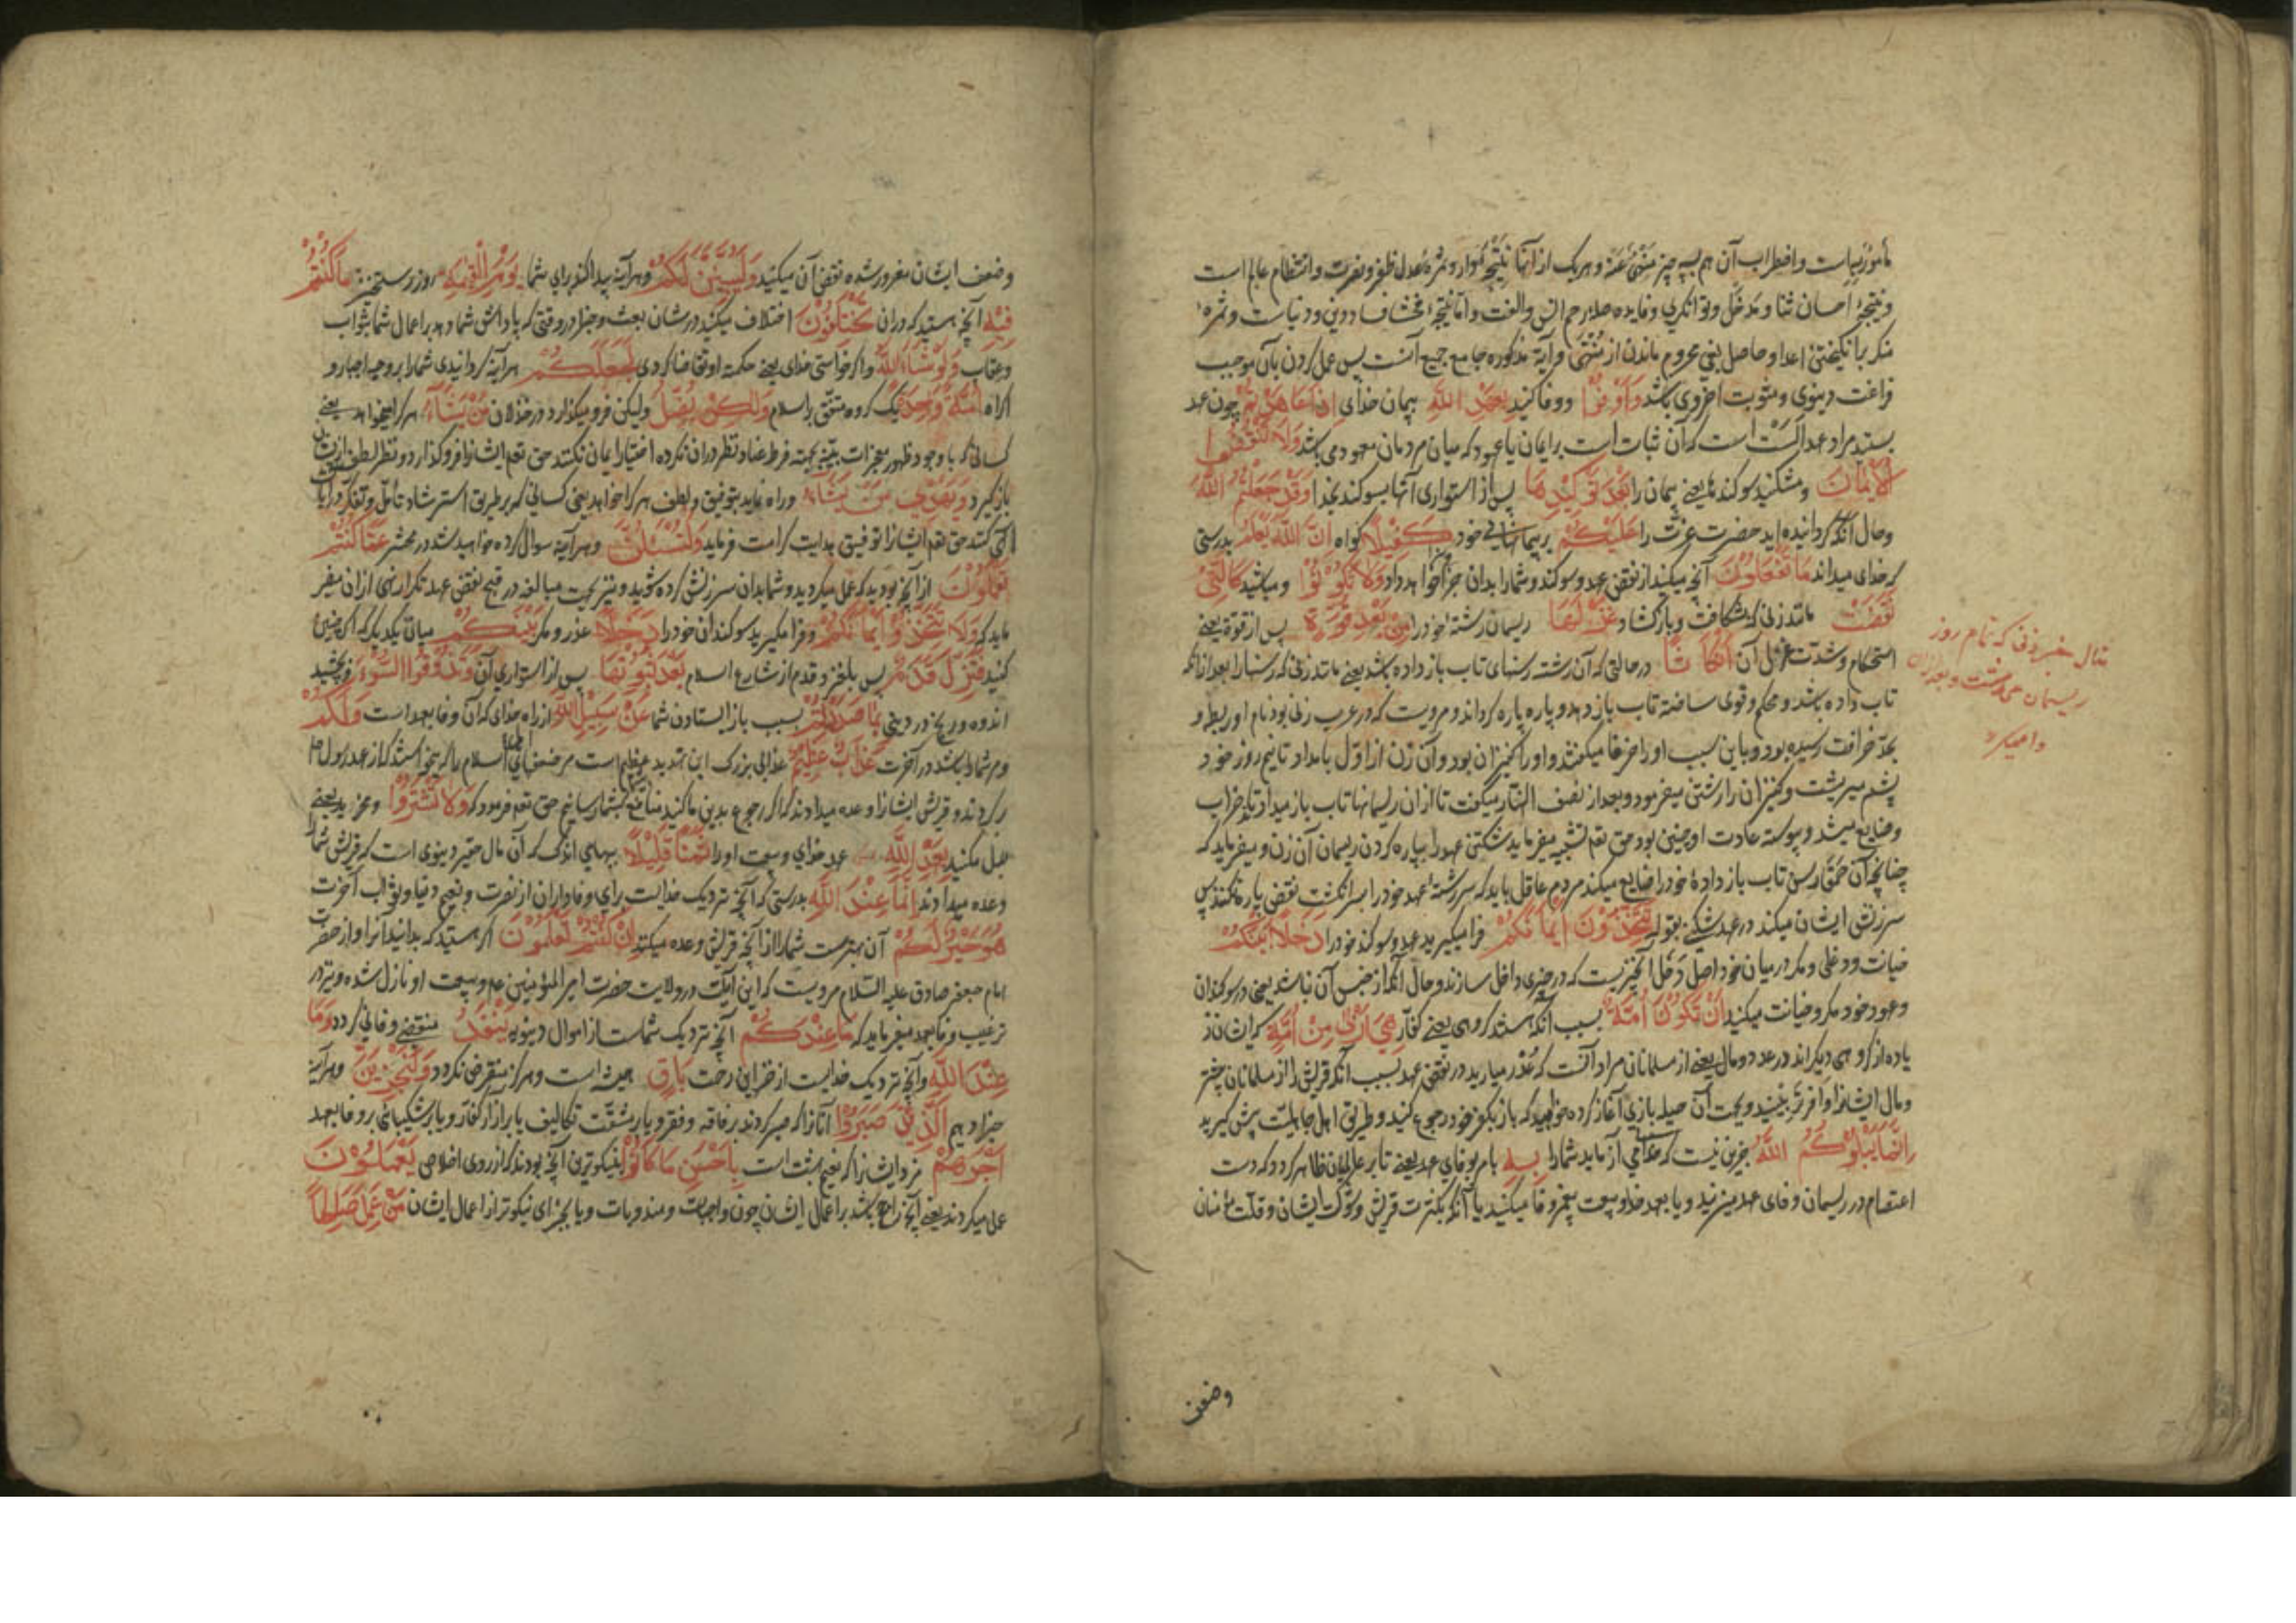 مأمور بهاست واضطراب آن هم بسه چیز منهی عنه وهر یک از آنها نتیجه دارد وثمره عدل ظفر ونصرت وانتظام عالم است
ونتیجۀ احسان ثنا و مدخل وتوانگری وفایده صله رحم انس والفت واما نتیجه فحشا فساد دین و دنیاست وثمرۀ
منکر برانگیختن اعدا وحاصل بغی محروم ماندن از متمنی وآیة مذکوره جامع جمیع آنست پس عمل کردن بآن موجب
فراغت دنیوی ومثوبت اخروی باشد وَاَوْفُوْا ووفا کنید بِعَهْدِ اللّٰهِ بپیمان خدای اِذَا عَاهَدْتُمْ چون عهد
بستید مراد عهد الست است که آن ثبات است بر ایمان یا عهود که میان مردمان معهود می باشد وَلَا تَنْقُضُوا
الْاَیْمَانَ ومشکنید سوکندها یعنی پیمان را بَعْدَ تَوْکِیْدِهَا پس از استواری آنها بسوکند بخدا وَقَدْ جَعَلْتُمُ اللّٰهَ
وحال آنکه کردانیده اید حضرت عزت را عَلَیْکُمْ بر پیمانهای خود کَفِیْلًا کواه اِنَّ اللّٰهَ یَعْلَمُ بدرستی
که خدای میداند مَا تَفْعَلُوْنَ آنچه میکنید از نقض عهد وسوکند وشما را بدان جزا خواهد داد وَلَا تَکُوْنُوْا ومباشید کَالَّتِیْ
نَقَضَتْ مانند زنی که بشکافت وباز کشاد غَزْلَهَا ریسمان رشتۀ خود را مِنْ بَعْدِ قُوَّةٍ پس از قوة یعنی
استحکام وشدت غزل آن اَنْکَاثًا در حالتی که آن رشته رسنهای تاب باز داده باشد یعنی مانند زنی که رسنها را بعد از انکه
تاب داده باشد ومحکم وقوی ساخته تاب باز دهد وپاره پاره کرداند ومرویست که در عرب زنی بود نام او ریطه و
بحد خرافت رسیده بود وباین سبب او را خرفا میکفتند واو را کنیزان بود وآن زن از اوّل بامداد تا نیم روز خود
پشم میرشت وکنیزان را رشتن میفرمود وبعد از نصف النهار میکفت تا از ان ریسمانها تاب باز میدادند تا خراب
وضایع میشد وپیوسته عادت او چنین بود حق تعم تشبیه میفرماید شکستن عهد را بپاره کردن ریسمان آن زن ومیفرماید که
چنانچه آن حمقا رسن تاب باز دادۀ خود را ضایع میکند مردم عاقل باید که سررشتۀ عهد خود را بسر انکشت نقض پاره نکنند پس
سرزنش ایشان میکند در عهد شکنی بقوله تَتَّخِذُوْنَ اَیْمَانَکُمْ فرا میکیرید عهد وسوکند خود را دَخَلًا بَیْنَکُمْ
خیانت ودغلی ومکر در میان خود اصل دخل آنچیزیست که در چیزی داخل سازند وحال آنکه از جنس آن نباشد یعنی در سوکندان
وعهود خود مکر وخیانت میکنید اَنْ تَکُوْنَ اُمَّةٌ بسبب آنکه هستند کروهی یعنی کفار هِیَ اَرْبٰی مِنْ اُمَّةٍ که ایشان
یاده از کروهی دیکراند در عدد ومال یعنی از مسلمانان مراد آنست که غدر میارید در نقض عهد بسبب آنکه قریش را از مسلمانان بیشتر
ومال ایشانرا وافرتر ببینید وبجهت آن حیله بازی آغاز کرده خواهید که باز بکفر خود رجوع کنید وطریق اهل جاهلیت پیش کیرید
اِنَّمَا یَبْلُوْکُمُ اللّٰهُ جز این نیست که خدای می آزماید شما را بِهٖ بامر بوفای عهد یعنی تا بر عالمیان ظاهر کردد که دست
اعتصام در ریسمان وفای عهد میزنید ویا بعهد خدا وبیعت پیغمبر وفا میکنید یا آنکه بکثرت قریش وشوکت ایشان وقلت مؤمنان
وضعف
مثال
زنی که تمام روز
ریسمان می رشت وبعد از ان
وا میکرد
وضعف ایشان مغرور شده نقض آن میکنید وَلَیُبَیِّنَنَّ لَکُمْ وهر آینه پیدا کند برای شما یَوْمَ الْقِیٰمَةِ روز رستخیز مَا کُنْتُمْ
فِیْهِ آنچه هستید که در ان تَخْتَلِفُوْنَ اختلاف میکنید در شان بعث وجزا در وقتی که پاداش شما دهد بر اعمال شما بثواب
وعقاب وَلَوْ شَاءَ اللّٰهُ واکر خواستی خدای یعنی حکمت او تقاضا کردی لَجَعَلَکُمْ هر آینه کردانیدی شما را بر وجه اجبار و
اکراه اُمَّةً وَّاحِدَةً یک کروه متفق بر اسلام وَلٰکِنْ یُّضِلُّ ولیکن فرو میکذارد در خذلان مَنْ یَّشَاءُ هر کرا میخواهد یعنی
کسانی که با وجود ظهور معجزات بینه بجهت فرط عناد ونظر در ان نکرده اختیار ایمان نکنند حق تعم ایشانرا فرو کذارد ونظر لطف از ایشان
باز کیرد وَیَهْدِیْ مَنْ یَّشَاءُ وراه نماید بتوفیق ولطف هر کرا خواهد یعنی کسانی که بر طریق استرشاد تأمل وتفکر در آیات
الهی کنند حق تعم ایشانرا توفیق هدایت کرامت فرماید وَلَتُسْئَلُنَّ وهر آینه سوال کرده خواهید شد در محشر عَمَّا کُنْتُمْ
تَعْمَلُوْنَ از آنچه بودید که عمل میکردید وشما بدان سرزنش کرده شوید ونیز بجهت مبالغه در قبح نقض عهد تکرار نهی از ان میفر
ماید که وَلَا تَتَّخِذُوْا اَیْمَانَکُمْ وفرا مکیرید سوکندان خود را دَخَلًا غدر ومکر بَیْنَکُمْ میان یکدیکر که اکر چنین
کنید فَتَزِلَّ قَدَمٌ پس بلغزد قدم از شارع اسلام بَعْدَ ثُبُوْتِهَا پس از استواری آن وَتَذُوْقُوا السُّوْءَ وبچشید
اندوه ورنج در دینی بِمَا صَدَدْتُمْ بسبب باز ایستادن شما عَنْ سَبِیْلِ اللّٰهِ از راه خدای که آن وفا بعهد است وَلَکُمْ
ومر شما را باشد در آخرت عَذَابٌ عَظِیْمٌ عذابی بزرک این تهدید عظیم است مر ضعفای اهل اسلام را که میخواستند که از عهد رسول
بر کردند وقریش ایشانرا وعده میدادند که اکر رجوع بدین ما کنید منافع بشما رسانیم حق تعم فرمود که وَلَا تَشْتَرُوْا ومخرید یعنی
بدل مکنید بِعَهْدِ اللّٰهِ عهد خدای وبیعت او را ثَمَنًا قَلِیْلًا ببهای اندک که آن مال حقیر دنیوی است که قریش شما را
وعده میدادند اِنَّمَا عِنْدَ اللّٰهِ بدرستی که آنچه نزدیک خدایست برای وفاداران از نصرت ونعیم دنیا وثواب آخرت
هُوَ خَیْرٌ لَّکُمْ آن بهترست شما را از آنچه قریش وعده میکنند اِنْ کُنْتُمْ تَعْلَمُوْنَ اکر هستید که بدانید آنرا واز حضرت
امام جعفر صادق علیه السلام مرویست که این آیت در ولایت حضرت امیر المؤمنین عم وبیعت او نازل شده ونیز در
ترغیب وفا بعهد میفرماید که مَا عِنْدَکُمْ آنچه نزدیک شماست از اموال دنیویه یَنْفَدُ منقضی وفانی کردد وَمَا
عِنْدَ اللّٰهِ وآنچه نزدیک خدایست از خزاین رحمت بَاقٍ همیشه است وهرکز منقرض نکردد وَلَنَجْزِیَنَّ وهر آینه
جزا دهیم الَّذِیْنَ صَبَرُوْا آنانرا که صبر کردند بر فاقه وفقر ویا بر مشقت تکالیف یا بر آزار کفار ویا بر شکیبائی بر وفا بعهد
اَجْرَهُمْ مزد ایشانرا که نعیم بهشت است بِاَحْسَنِ مَا کَانُوْا بنیکوترین آنچه بودند که از روی اخلاص یَعْمَلُوْنَ
عمل میکردند یعنی آنچه راجح باشد بر اعمال ایشان چون واجبات ومندوبات ویا بجزای نیکوتر از اعمال ایشان مَنْ عَمِلَ صَالِحًا